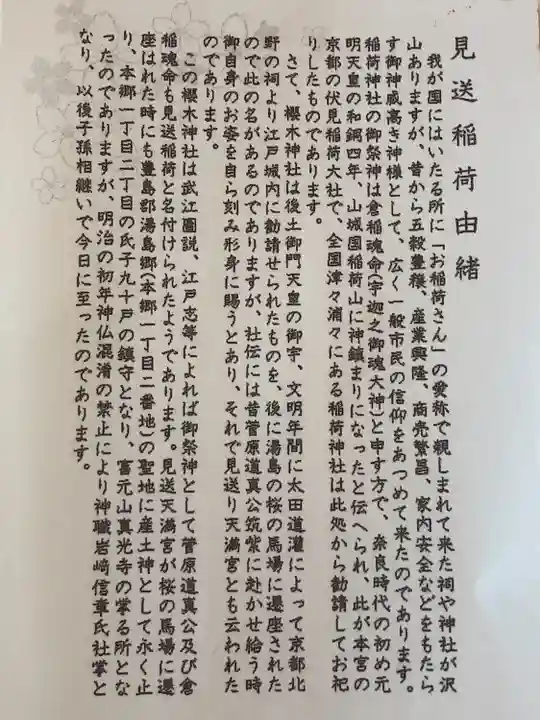 見送稲荷由緒
我が国にはいたる所に「お稲荷さん」の愛称で親しまれて来た祠や神社が沢
山ありますが、昔から五穀豊穣、産業興隆、商売繁昌、家内安全などをもたら
す御神威高き神様として、広く一般市民の信仰をあつめて来たのであります。
稲荷神社の御祭神は倉稲魂命(宇迦之御魂大神)と申す方で、奈良時代の初め元
明天皇の和銅四年、山城国稲荷山に神鎮まりになったと伝へられ、此が本宮の
京都の伏見稲荷大社で、全国津々浦々にある稲荷神社は此処から勧請してお祀
りしたものであります。
さて、櫻木神社は後土御門天皇の御宇、文明年間に太田道灌によって京都北
野の祠より江戸城内に勧請せられたものを、後に湯島の桜の馬場に遷座された
ので此の名があるのでありますが、社伝には昔菅原道真公筑紫に赴かせ給う時
御自身のお姿を自ら刻み形身に賜うとあり、それで見送り天満宮とも云われた
のであります。
この櫻木神社は武江図説、江戸志等によれば御祭神として菅原道真公及び倉
稲魂命も見送稲荷と名付けられたようであります。見送天満宮が桜の馬場に遷
座はれた時にも豊島郡湯島郷(本郷一丁目二番地)の聖地に産土神として永く止
り、本郷一丁目二丁目の氏子九十戸の鎮守となり、富元山真光寺の掌る所とな
ったのでありますが、明治の初年神仏混淆の禁止により神職岩﨑信章氏社掌と
なり、以後子孫相継いで今日に至ったのであります。